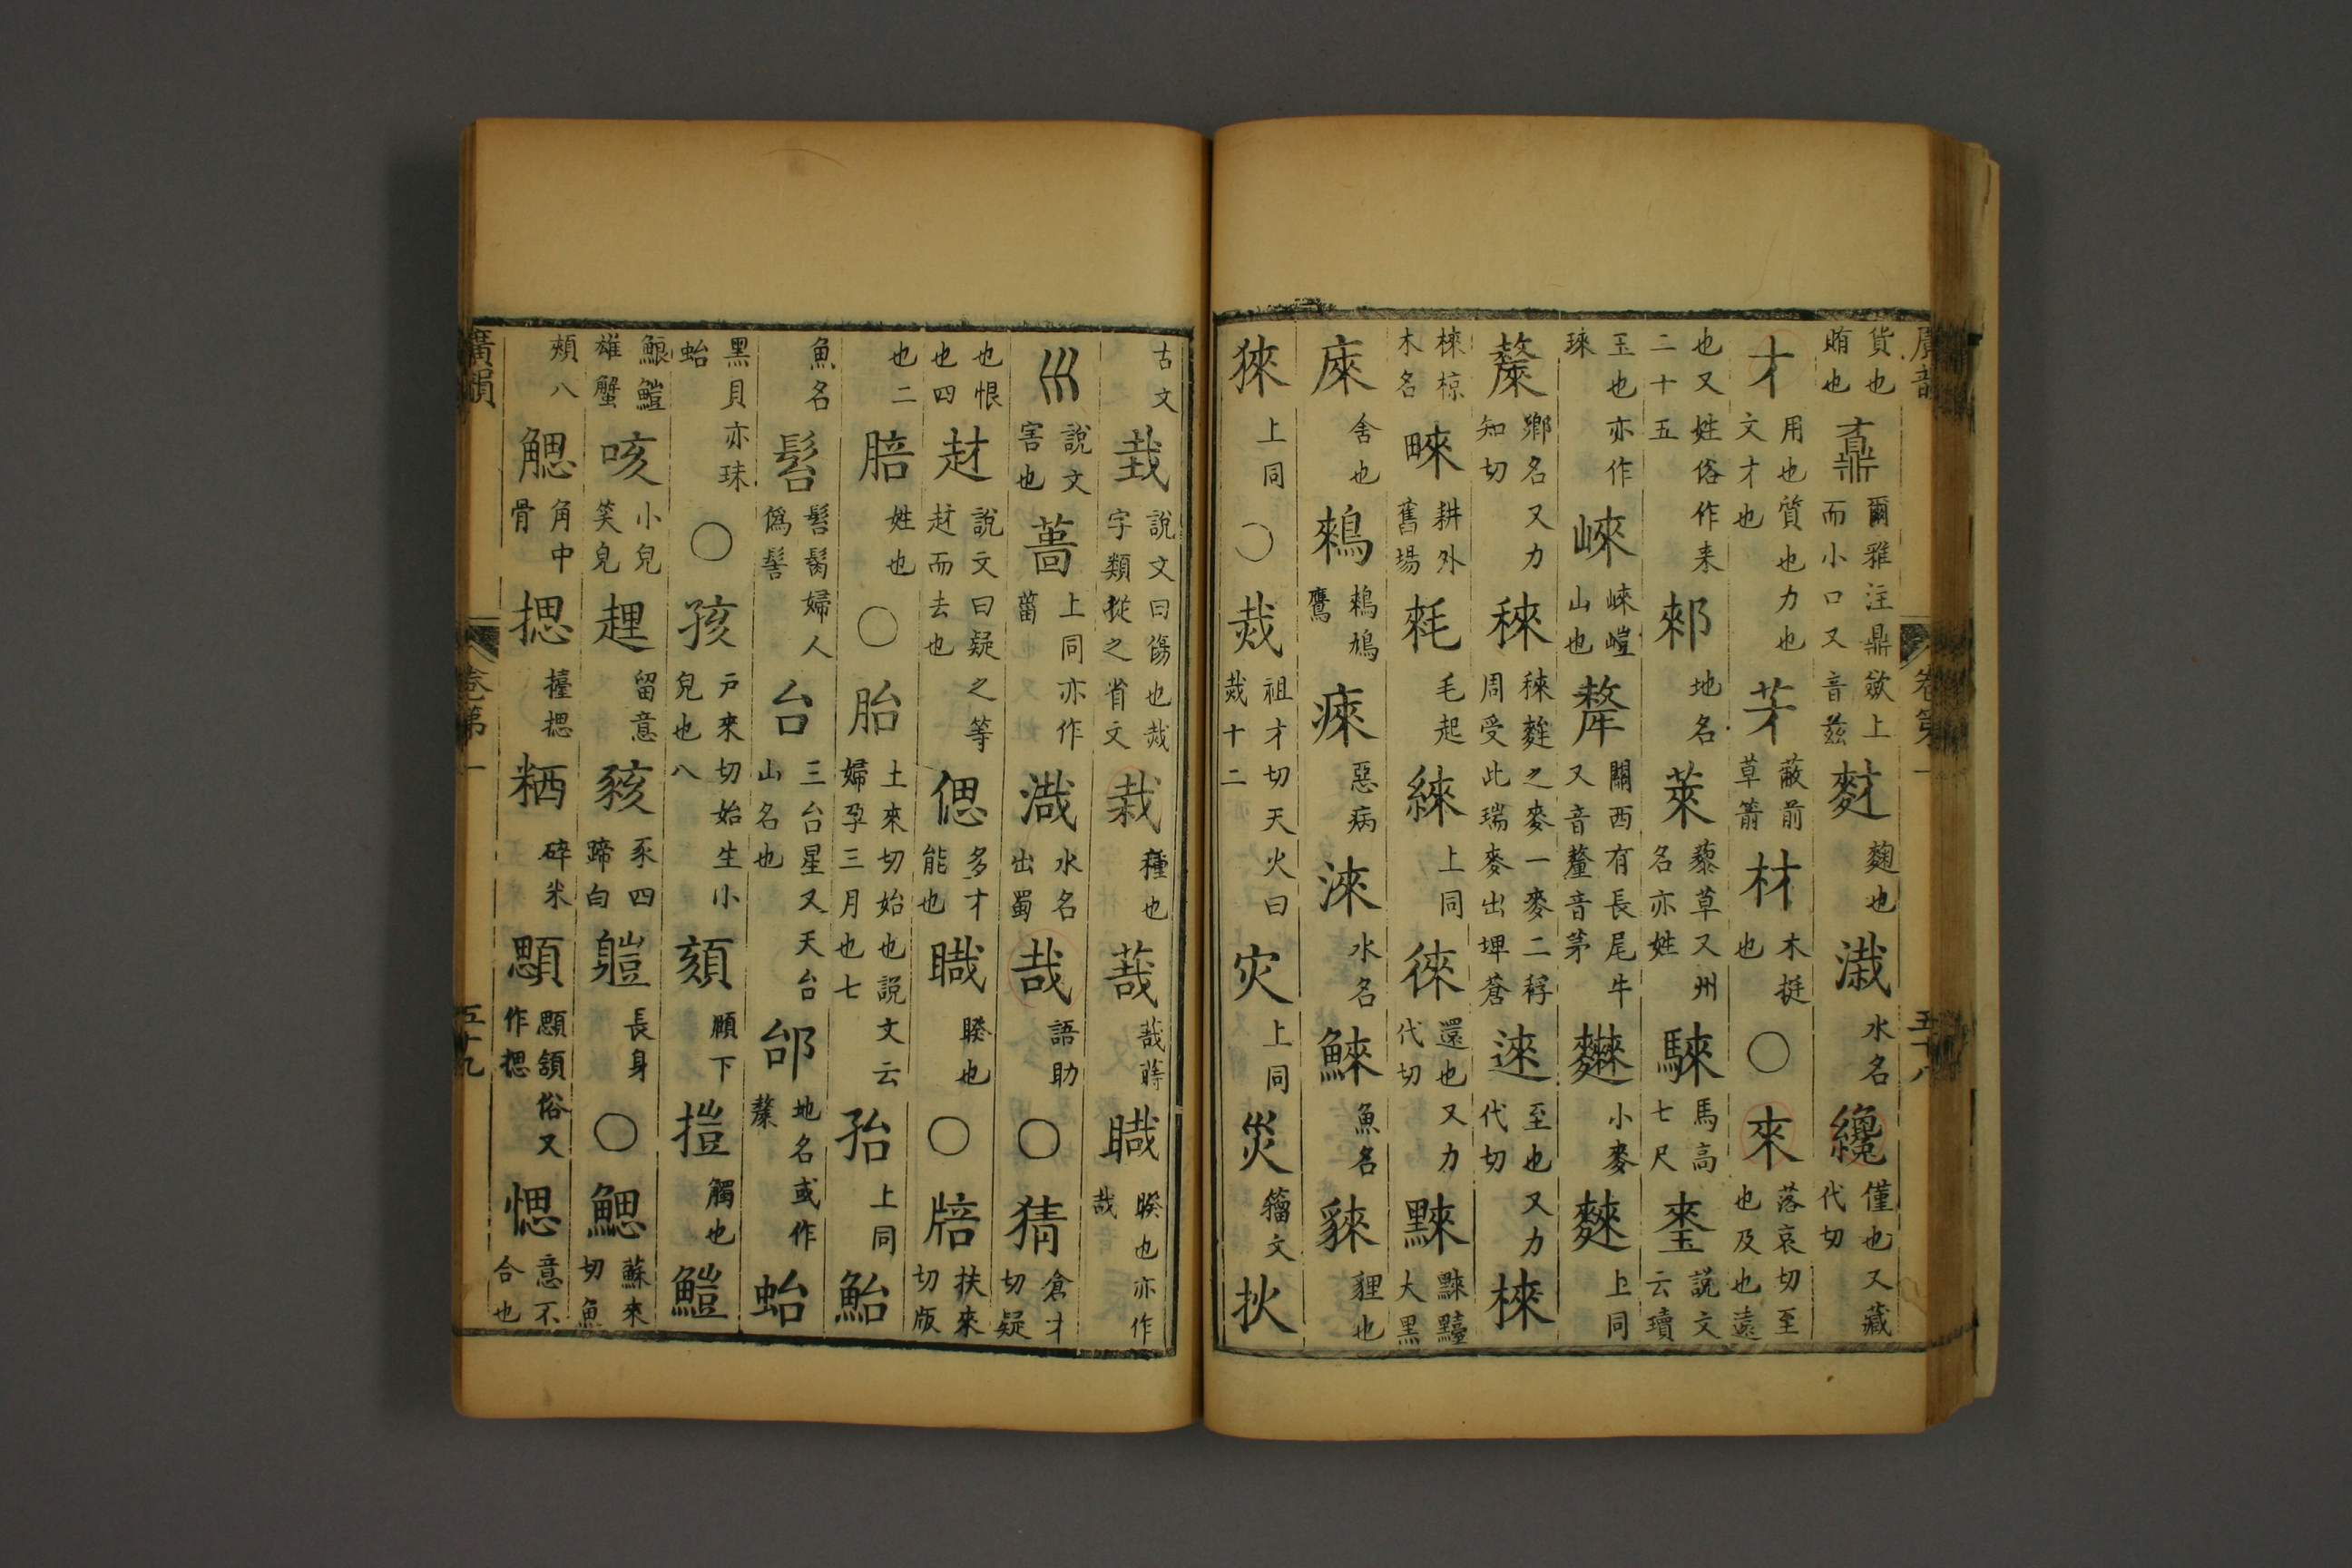 廣韻 卷第一 五十八
貨也賄也 鼒 爾雅注鼎斂上而小口又音兹 䴭 麴也 溨 水名 纔 僅也又藏代切
才 用也質也力也文才也 䒲 蔽前草箭 材 木挺也 ○ 來 落哀切至也及也遠
也又姓俗作来二十五 郲 地名 萊 藜草又州名亦姓 騋 馬高七尺 說文云瓄
玉也亦作琜 崍 崍嵦山也 犛 關西有長尾牛又音釐音茅 小麥 麳 上同
斄 鄉名又力知切 䅘 䅘麰之麥一麥二稃周受此瑞麥出埤蒼 逨 至也又力代切 棶
棶椋木名 耕外舊場 毛起 上同 徠 還也又力代切 大黑
庲 舍也 鶆 鶆鳩鷹 㾢 惡病 淶 水名 鯠 魚名 貍也
猍 上同 ○ 烖 祖才切天火曰烖十二 灾 上同 災 籀文 扻
古文 說文曰傷也烖字類從之省文 栽 種也 睽也亦作
巛 說文害也 葘 上同亦作菑 渽 水名出蜀 哉 語助 ○ 猜 倉才切疑
也恨也四 說文曰疑之等而去也 偲 多才能也 睽也 ○ 扶來切版
也二 姓也 ○ 胎 土來切始也說文云婦孕三月也七 孡 上同 鮐
魚名 婦人偽髻 台 三台星又天台山名也 邰 地名或作斄 蛤
黑貝亦珠蛤 ○ 孩 戶來切始生小兒也八 頦 頤下 觸也
雄蟹 咳 小兒笑皃 留意 豥 豕四蹄白 長身 ○ 鰓 蘇來切魚
頰八 䚡 角中骨 揌 擡揌 碎米 顋 顋頷俗又作揌 愢 意不合也
廣韻 卷第一 五十九